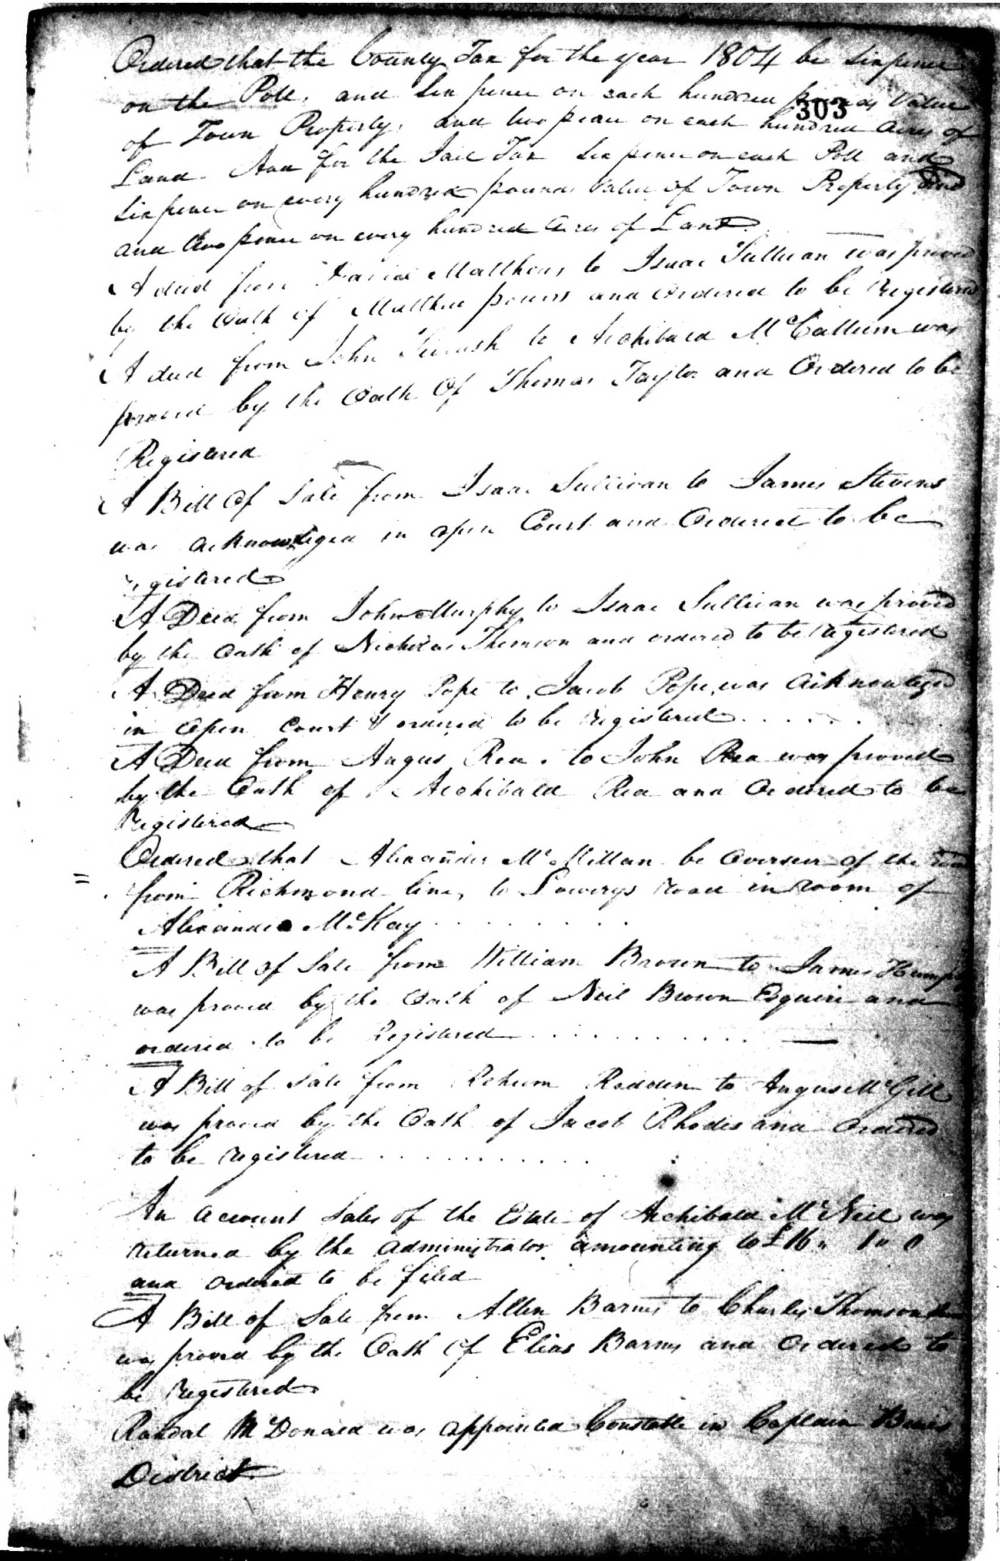 Ordered that the County Tax for the year 1804 be Sixpence
on the Poll, and Six pence on each hundred pounds Value
303
of Town Property, and two pence on each hundred Acres of
Land. And for the Jail Tax Six pence on each Poll and
Six pence on every hundred pounds Value of Town Property and
and two pence on every hundred Acres of Land
A deed from Matthews to Isaac Sullivan was proved
by the Oath of Matthew powers and Ordered to be Registered
A deed from John to Archibald McCallum was
proved by the Oath Of Thomas Taylor and Ordered to be
Registered
A Bill Of Sale from Isaac Sullivan to James Stevens
was acknowledged in open Court and Ordered to be
registered
A Deed from John Murphy to Isaac Sullivan was proved
by the Oath of Nicholas Thomson and ordered to be registered
A Deed from Henry Pope to Jacob Pope was Acknowledged
in Open Court & ordered to be registered
A Deed from Angus Rea to John Rea was proved
by the Oath of Archibald Rea and Ordered to be
Registered
Ordered that Alexander McMillan be Overseer of the road
from Richmond line, to Lowerys road in room of
Alexander McKay
A Bill of Sale from William Brown to James
was proved by the Oath of Neil Brown Esquire and
ordered to be registered
A Bill of Sale from Rodden to Angus McGill
was proved by the Oath of Jacob Rhodes and Ordered
to be registered
An account Sales of the Estate of Archibald McNeil was
returned by the administrator amounting to £16 " 1 " 0
and ordered to be filed
A Bill of Sale from Allen Barnes to Charles Thomson
was proved by the Oath Of Elias Barnes and Ordered to
be registered
Randal McDonald was appointed Constable in Captain
District